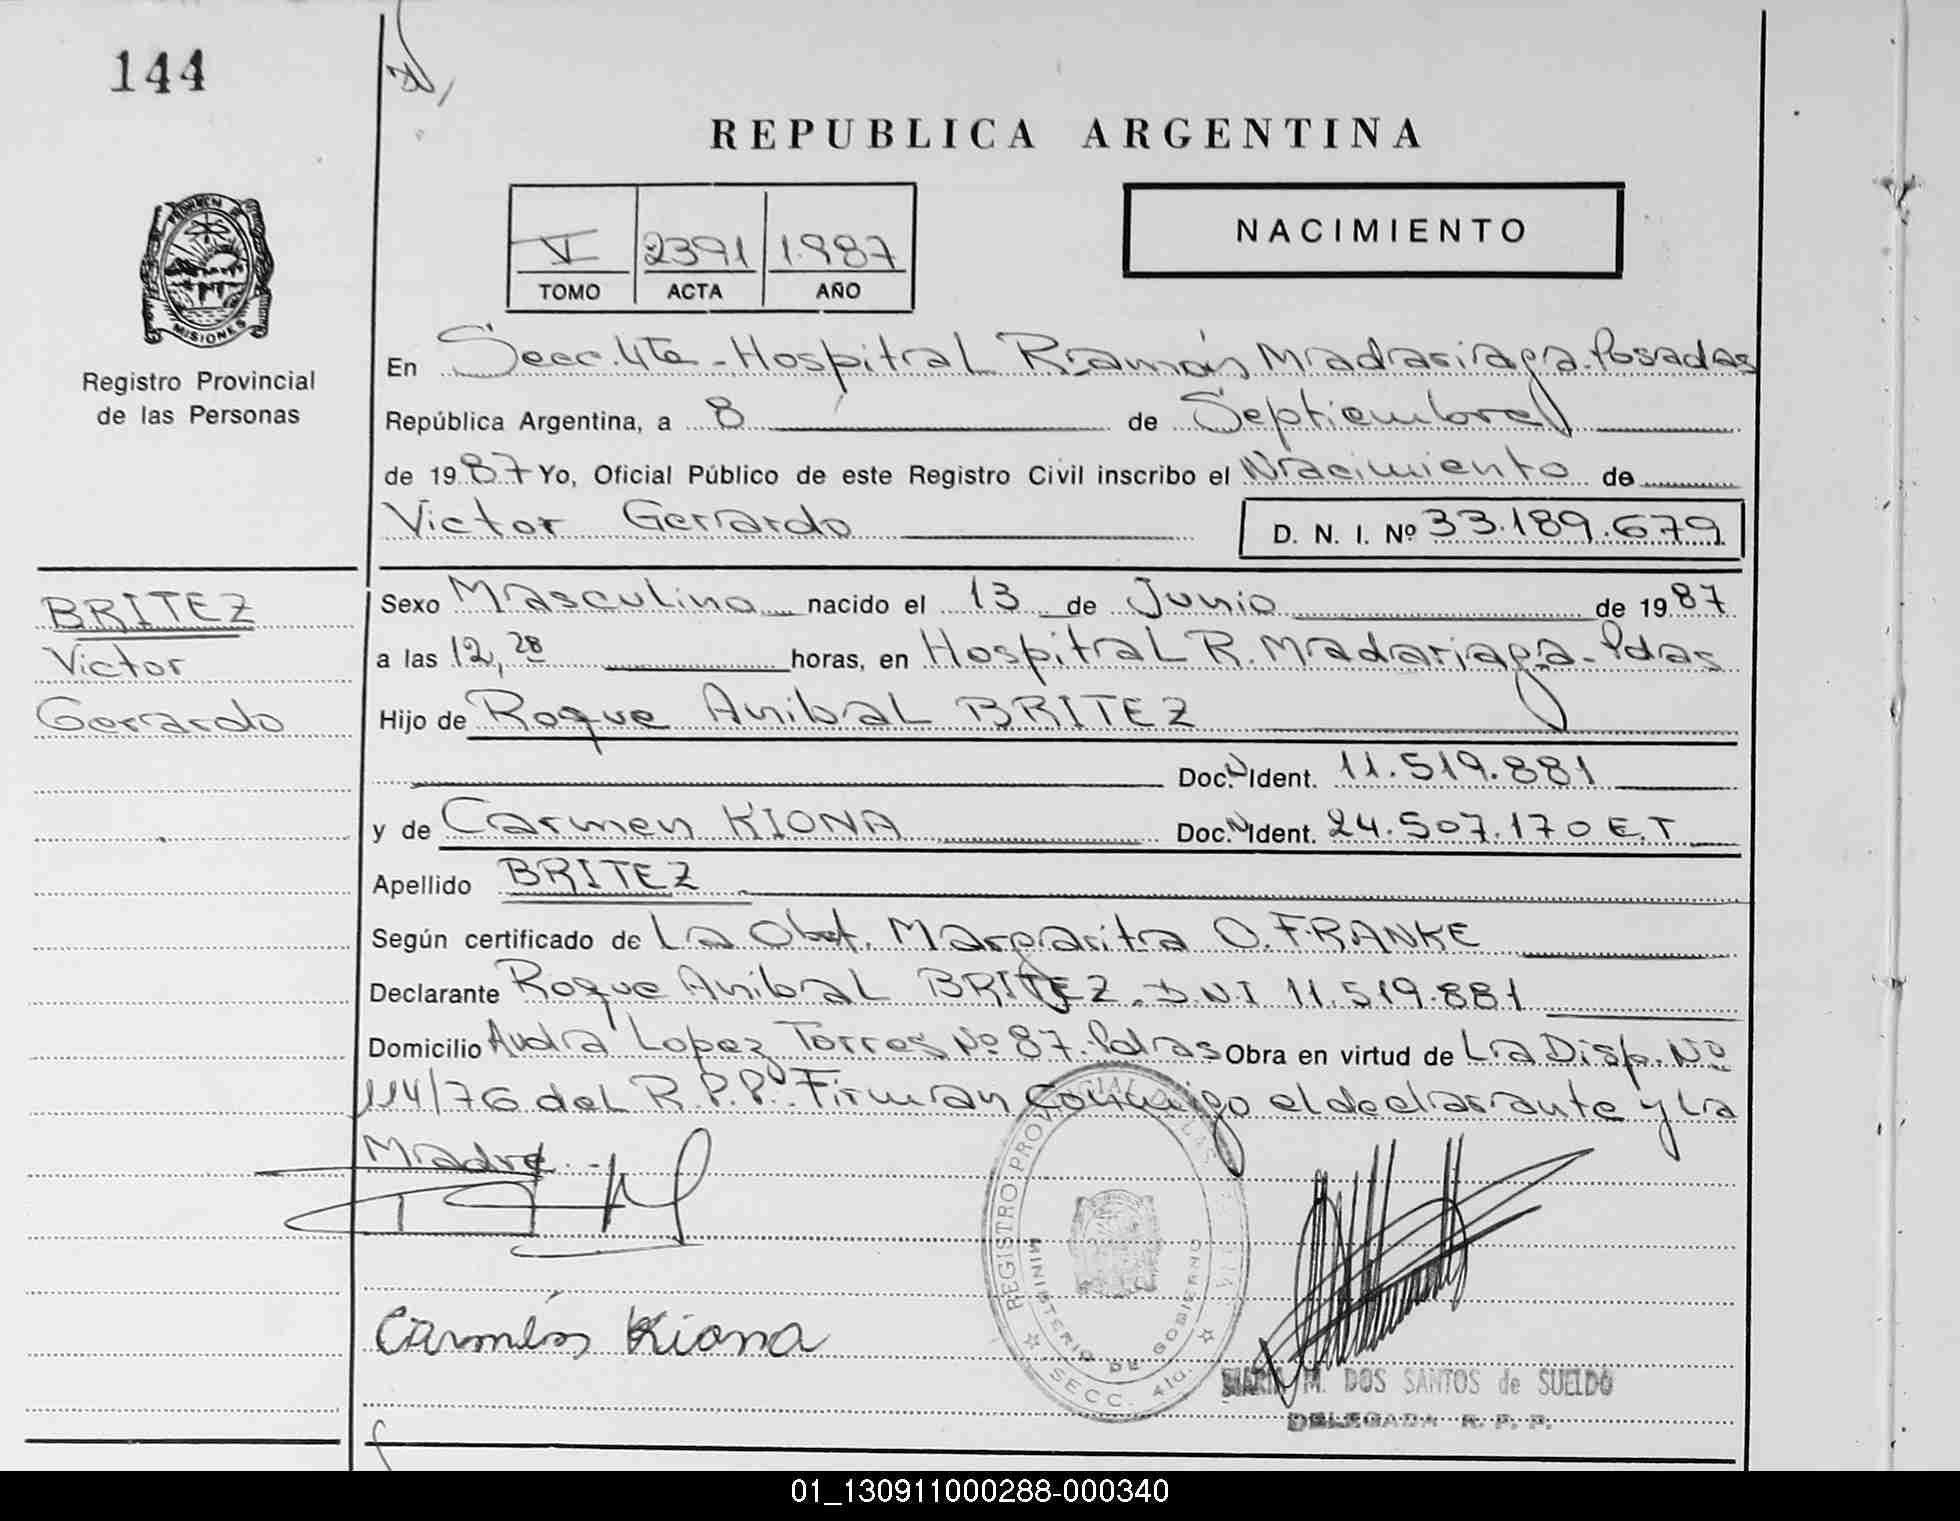 144
REPUBLICA ARGENTINA
V 2391 1.987
TOMO ACTA AÑO
NACIMIENTO
PROVINCIA DE
MISIONES
Registro Provincial
de las Personas
En Secc. 4ta - Hospital Ramón Madariaga - Posadas
República Argentina, a 8 de Septiembre
de 1987 Yo, Oficial Público de este Registro Civil inscribo el Nacimiento de
Victor Gerardo D. N. I. Nº 33.189.679
BRITEZ
Victor
Gerardo
Sexo Masculino nacido el 13 de Junio de 1987
a las 12,28 horas, en Hospital R. Madariaga - Pdas
Hijo de Roque Anibal BRITEZ
Doc. N Ident. 11.519.881
y de Carmen KIONA Doc. N Ident. 24.507.170 E.T
Apellido BRITEZ
Según certificado de La Obst. Margarita O. FRANKE
Declarante Roque Anibal BRITEZ. D.N.I 11.519.881
Domicilio Avda Lopez Torres Nº 87. Pdas Obra en virtud de La Disp. Nº
114/76 del R.P.P. Firman Conmigo el declarante y La
Madre
REGISTRO PROVINCIAL DE LAS
MINISTERIO DE GOBIERNO
SECC. 4ta.
Carmen Kiona
MARIA M. DOS SANTOS de SUELDO
DELEGADA R. P. P.
01_130911000288-000340